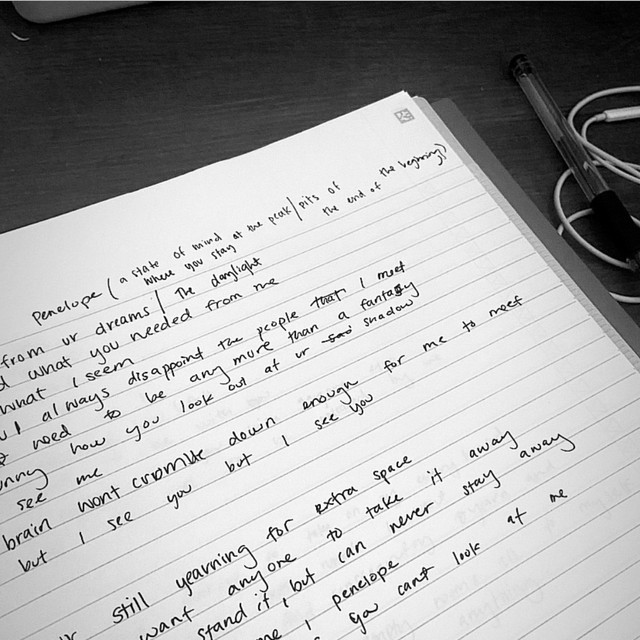 Penelope (a state of mind where you stay at the peak/pits of the end of the beginning?)
from ur dreams / The daylight
what you needed from me
what I seem
I always disappoint the people that I meet
need to be any more than a fantasy
how you look out at ur shadow
see me
brain wont crumble down enough for me to meet
but I see you but I see you
still yearning for extra space
want anyone to take it away
stand it, but can never stay away
I penelope
you cant look at me